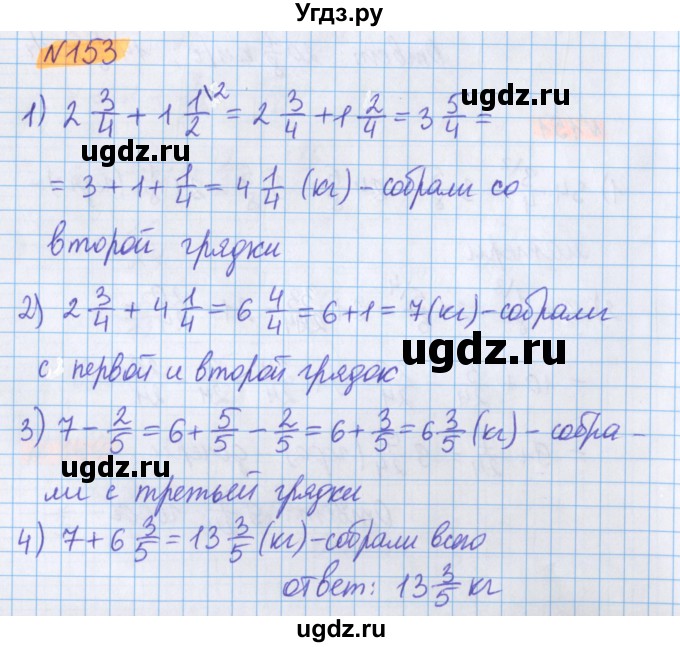 Угдз.ру
№153
1) 2 3/4 + 1 1/2 \2 = 2 3/4 + 1 2/4 = 3 5/4 =
ugdz.ru
ugdz.ru
= 3 + 1 + 1/4 = 4 1/4 (кг) - собрали со
второй грядки
2) 2 3/4 + 4 1/4 = 6 4/4 = 6 + 1 = 7 (кг) - собрали
ugdz.ru
с первой и второй грядок
3) 7 - 2/5 = 6 + 5/5 - 2/5 = 6 + 3/5 = 6 3/5 (кг) - собра -
ugdz.ru
ли с третьей грядки
4) 7 + 6 3/5 = 13 3/5 (кг) - собрали всего
ugdz.ru
ugdz.ru
ответ: 13 3/5 кг
ugdz.ru